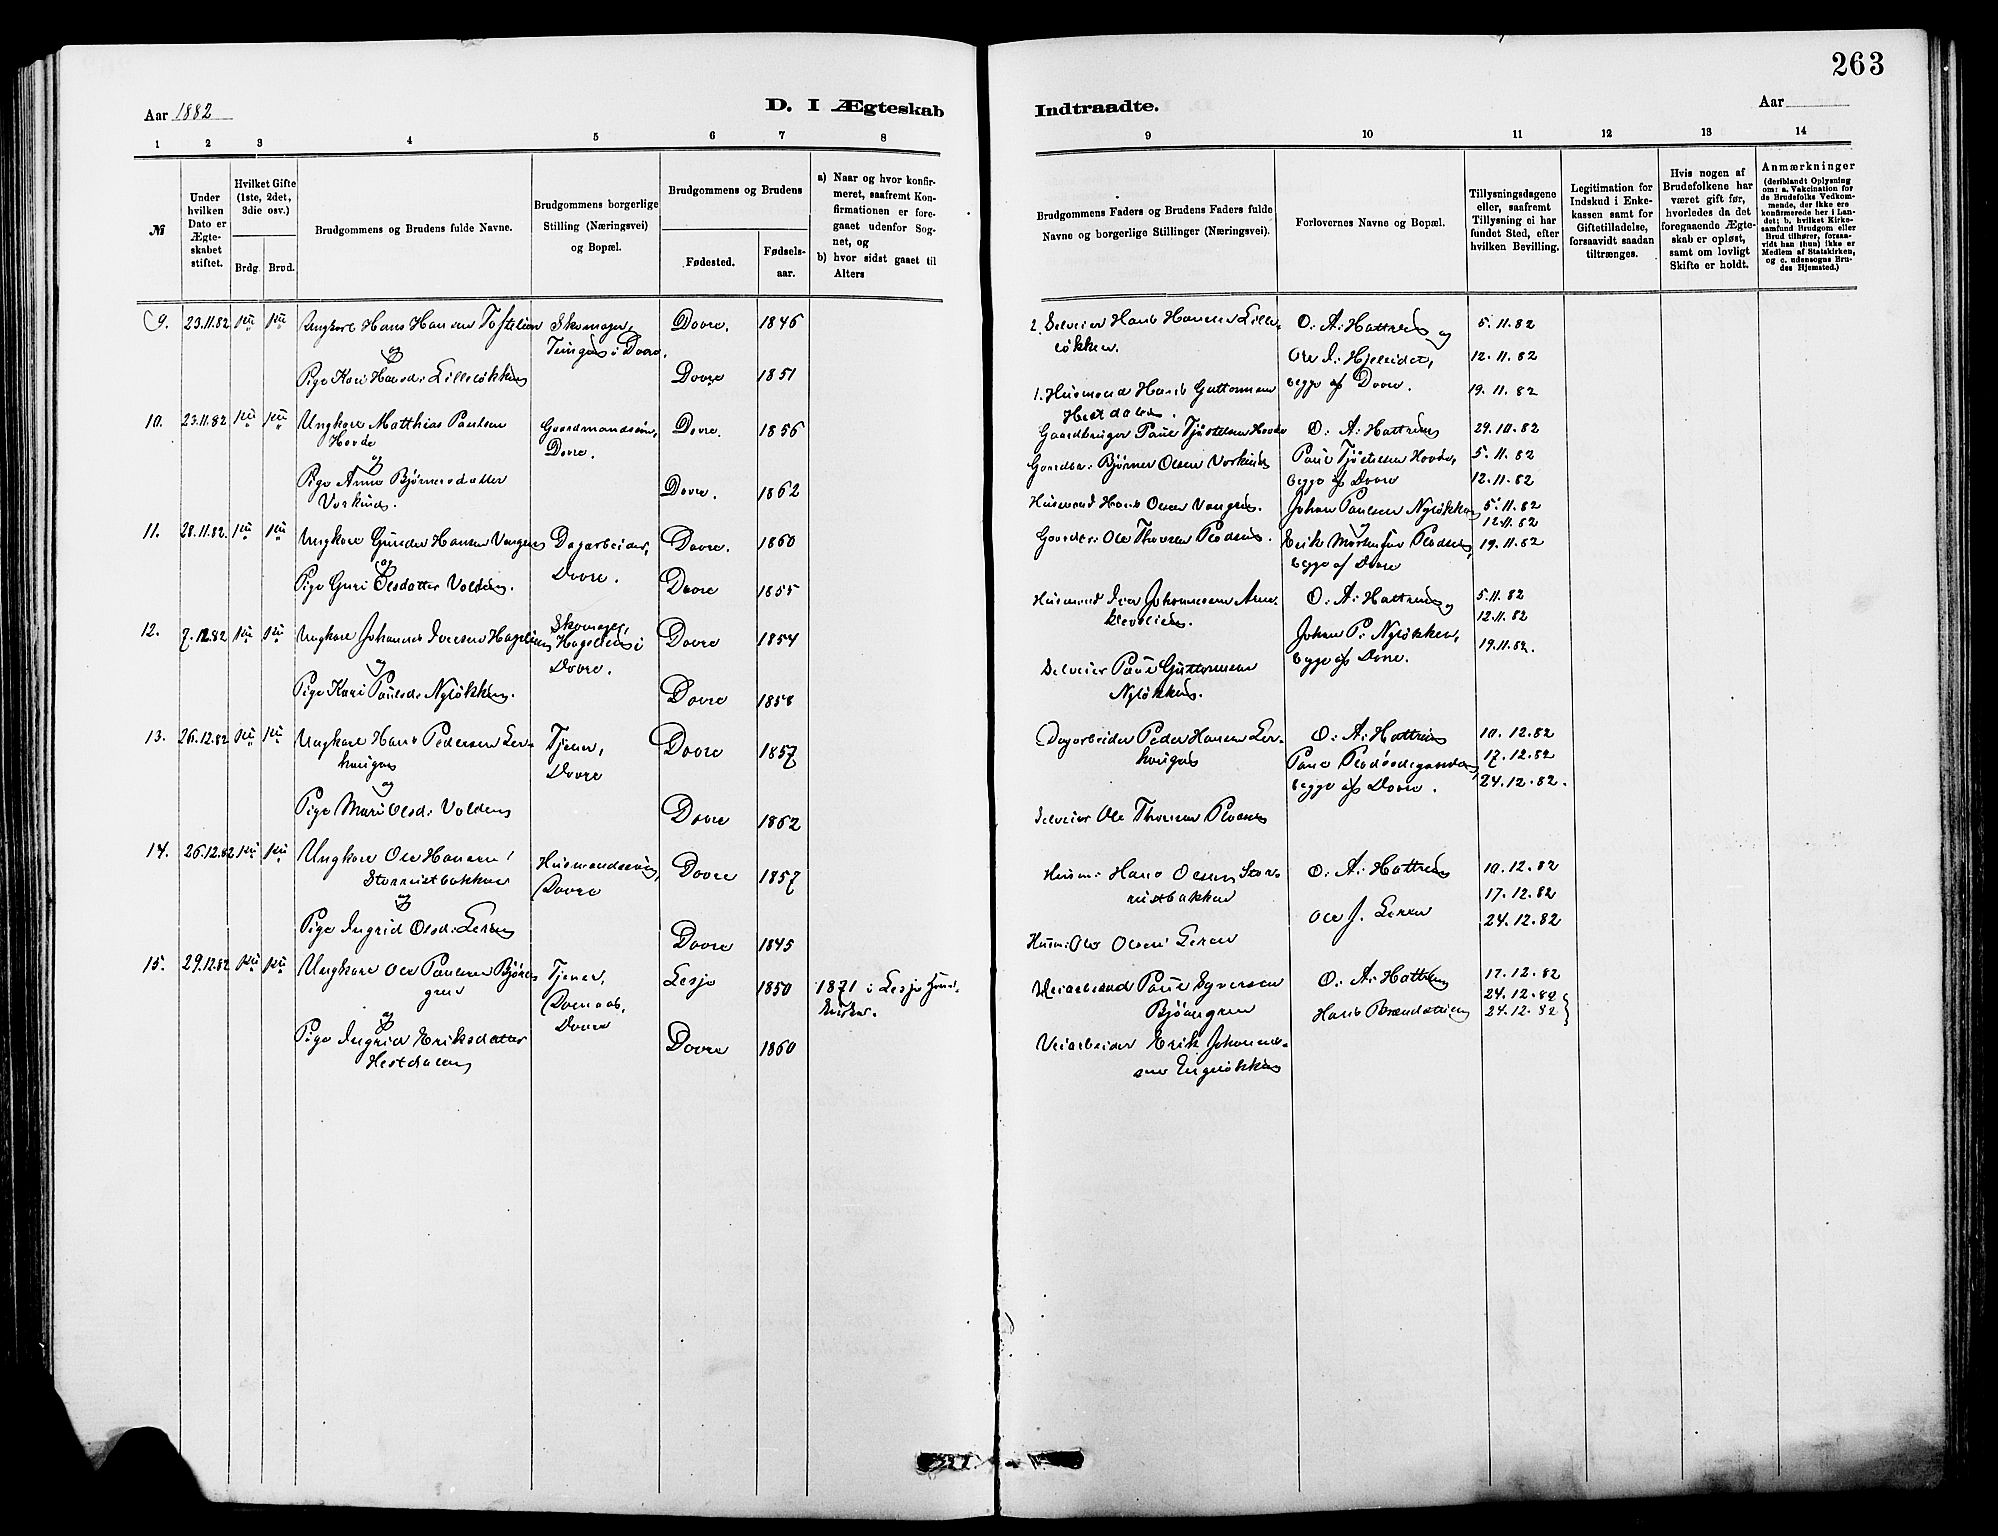 263
Aar 1882
D. I Ægteskab
Indtraadte.
Aar
1 2 3 4 5 6 7 8
9 10 11 12 13 14
№
Under hvilken Dato er Ægte-skabet stiftet.
Hvilket Gifte (1ste, 2det, 3die osv.)
Brdg. Brud.
Brudgommens og Brudens fulde Navne.
Brudgommens borgerlige Stilling (Næringsvei) og Bopæl.
Brudgommens og Brudens
Fødested.
Fødsels-aar.
a) Naar og hvor konfir-meret, saafremt Kon-firmationen er fore-gaaet udenfor Sog-net, og
b) hvor sidst gaaet til Alters
Brudgommens Faders og Brudens Faders fulde Navne og borgerlige Stillinger (Næringsvei).
Forlovernes Navne og Bopæl.
Tillysningsdagene eller, saafremt Tillysning ei har fundet Sted, efter hvilken Bevilling.
Legitimation for Indskud i Enke-kassen samt for Giftetilladelse, forsaavidt saadan tiltrænges.
Hvis nogen af Brudefolkene har været gift før, hvorledes da det foregaaende Ægte-skab er opløst, samt om lovligt Skifte er holdt.
Anmærkninger
(deriblandt Oplysning om: a. Vakcination for de Brudefolks Vedkom-mende, der ikke ere konfirmerede her i Lan-det; b. hvilket Kirke-samfund Brudgom eller Brud tilhører, forsaa-vidt han (hun) ikke er Medlem af Statskirken, og c. udensogns Bru-des Hjemsted.)
9. 23.11.82 Ungkarl Hans Hansen Skomager, Dovre. 1846
i Dovre.
og
Pige Kari Hansd: Lilleløkken Dovre 1851
2. Selveier Hans Hansen Lille-
løkken.
1. Husmand Hans Guttormsen
Hestdalen.
O. A. Hattrem og
Ole I. Hjelleidet,
begge af Dovre.
5.11.82
12.11.82
19.11.82
10. 23.11.82 Ungkarl Matthias Paulsen Gaardmandssøn, Dovre. 1856
Hovde Dovre.
og
Pige Anne Bjørnersdatter Dovre. 1862
Vorkind.
Gaardbruger Paul Tjøstelsen Hovde
Gaardbr: Bjørner Olsen Vorkind
O. A. Hattrem
Paul Tjøstelsen Hovde,
begge af Dovre
29.10.82
5.11.82
12.11.82
11. 28.11.82. Ungkarl Gunder Hansen Vangen Dagarbeider, Dovre. 1860
og
Dovre.
Pige Guri Olsdatter Volden. Dovre 1855
Husmand Hans Olsen Vangen.
Gaardbr: Ole Thorsen
Johan Paulsen Nyløkken
Erik
begge af Dovre
5.11.82
12.11.82
19.11.82
12. 7.12.82 Ungkarl Johannes Iversen Skomager, Dovre 1854
i
Dovre.
og
Pige Kari Paulsd: Nyløkken. Dovre 1858
Husmand Iver Johannesen
Selveier Paul Guttormsen
Nyløkken.
O. A. Hattrem og
Johan P. Nyløkken,
begge af Dovre.
5.11.82
12.11.82
19.11.82.
13. 26.12.82 Ungkarl Hans Pedersen Ler- Tjener, Dovre 1857
haugen Dovre
og
Pige Mari Olsd: Volden Dovre 1862
Dagarbeider Peder Hansen Ler-
haugen
Selveier Ole Thorsen
O. A. Hattrem
Paul
begge af Dovre.
10.12.82
17.12.82
24.12.82.
14. 26.12.82 Ungkarl Ole Hansen Husmandssøn, Dovre 1857
Storrustbakken Dovre
og
Pige Ingrid Olsd: Leren Dovre 1845
Husm: Hans Olsen Stor-
rustbakken
Husm: Ole Olsen Leren
O. A. Hattrem
Ole J. Leren
10.12.82
17.12.82
24.12.82
15. 29.12.82 Ungkarl Ole Paulsen Tjener, Lesje 1850 1871 i Lesje
Dovre
og
Pige Ingrid Eriksdatter Dovre 1860
Hestdalen
Veiarbeider Erik
Engeløkken
O. A. Hattrem
Hans
17.12.82
24.12.82
24.12.82